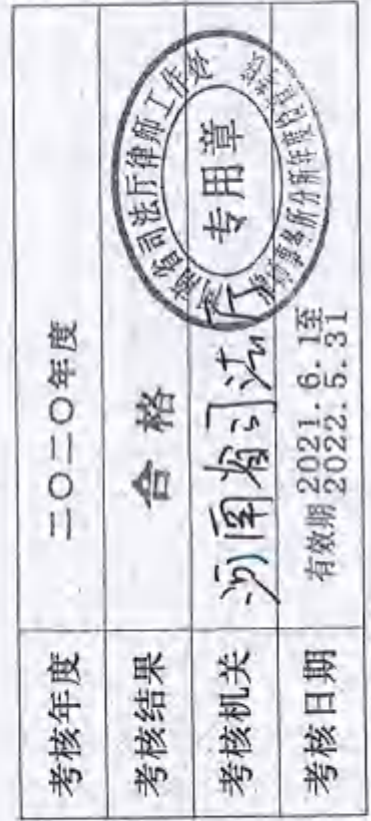 考核年度 二〇二〇年度
考核结果 合格
考核机关 河南省司法厅
考核日期 有效期 2021.6.1至
2022.5.31
河南省司法厅律师工作处
专用章